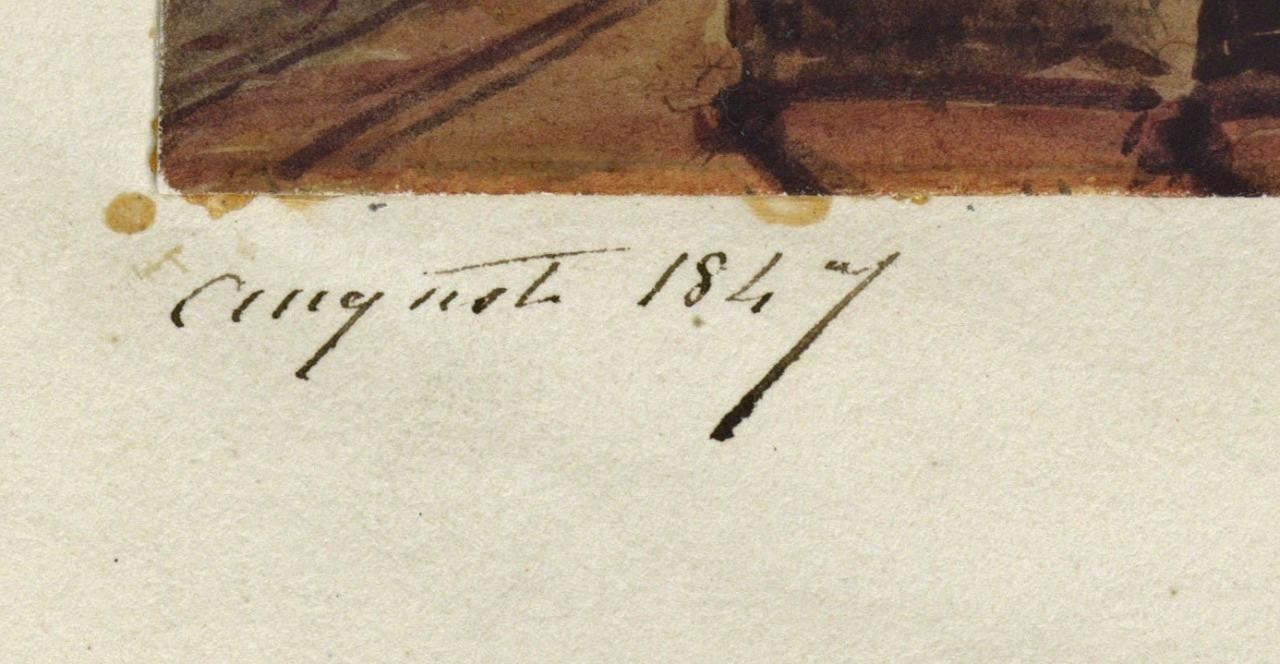 August 1847